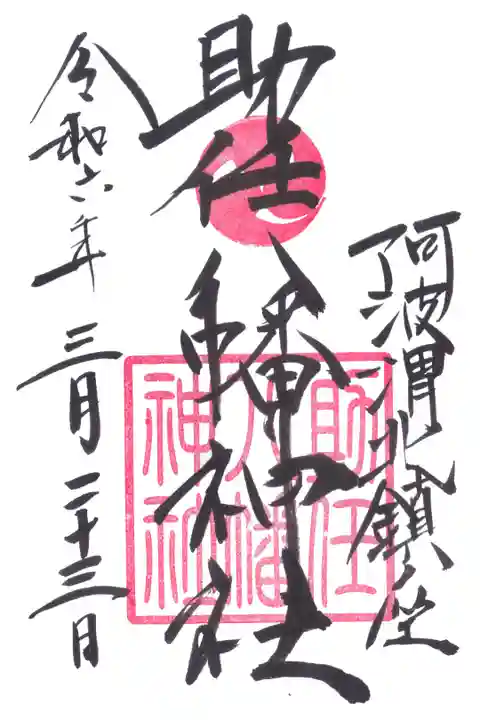 阿波渭北鎮座
助任八幡神社
令和六年 三月二十三日
助任
八幡
神社